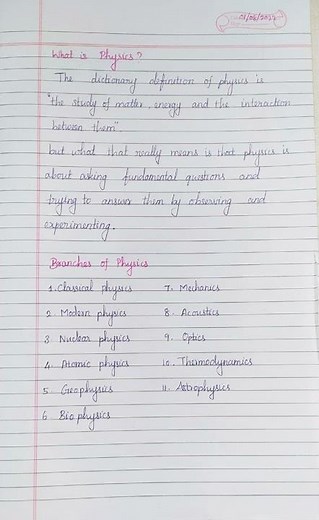 01/06/2022
What is Physics?
The dictionary definition of physics is
"the study of matter, energy and the interaction
between them".
but what that really means is that physics is
about asking fundamental questions and
trying to answer them by observing and
experimenting.
Branches of Physics
1. Classical physics 7. Mechanics
2. Modern physics 8. Acoustics
3. Nuclear physics 9. Optics
4. Atomic physics 10. Thermodynamics
5. Geophysics 11. Astrophysics
6. Bio physics